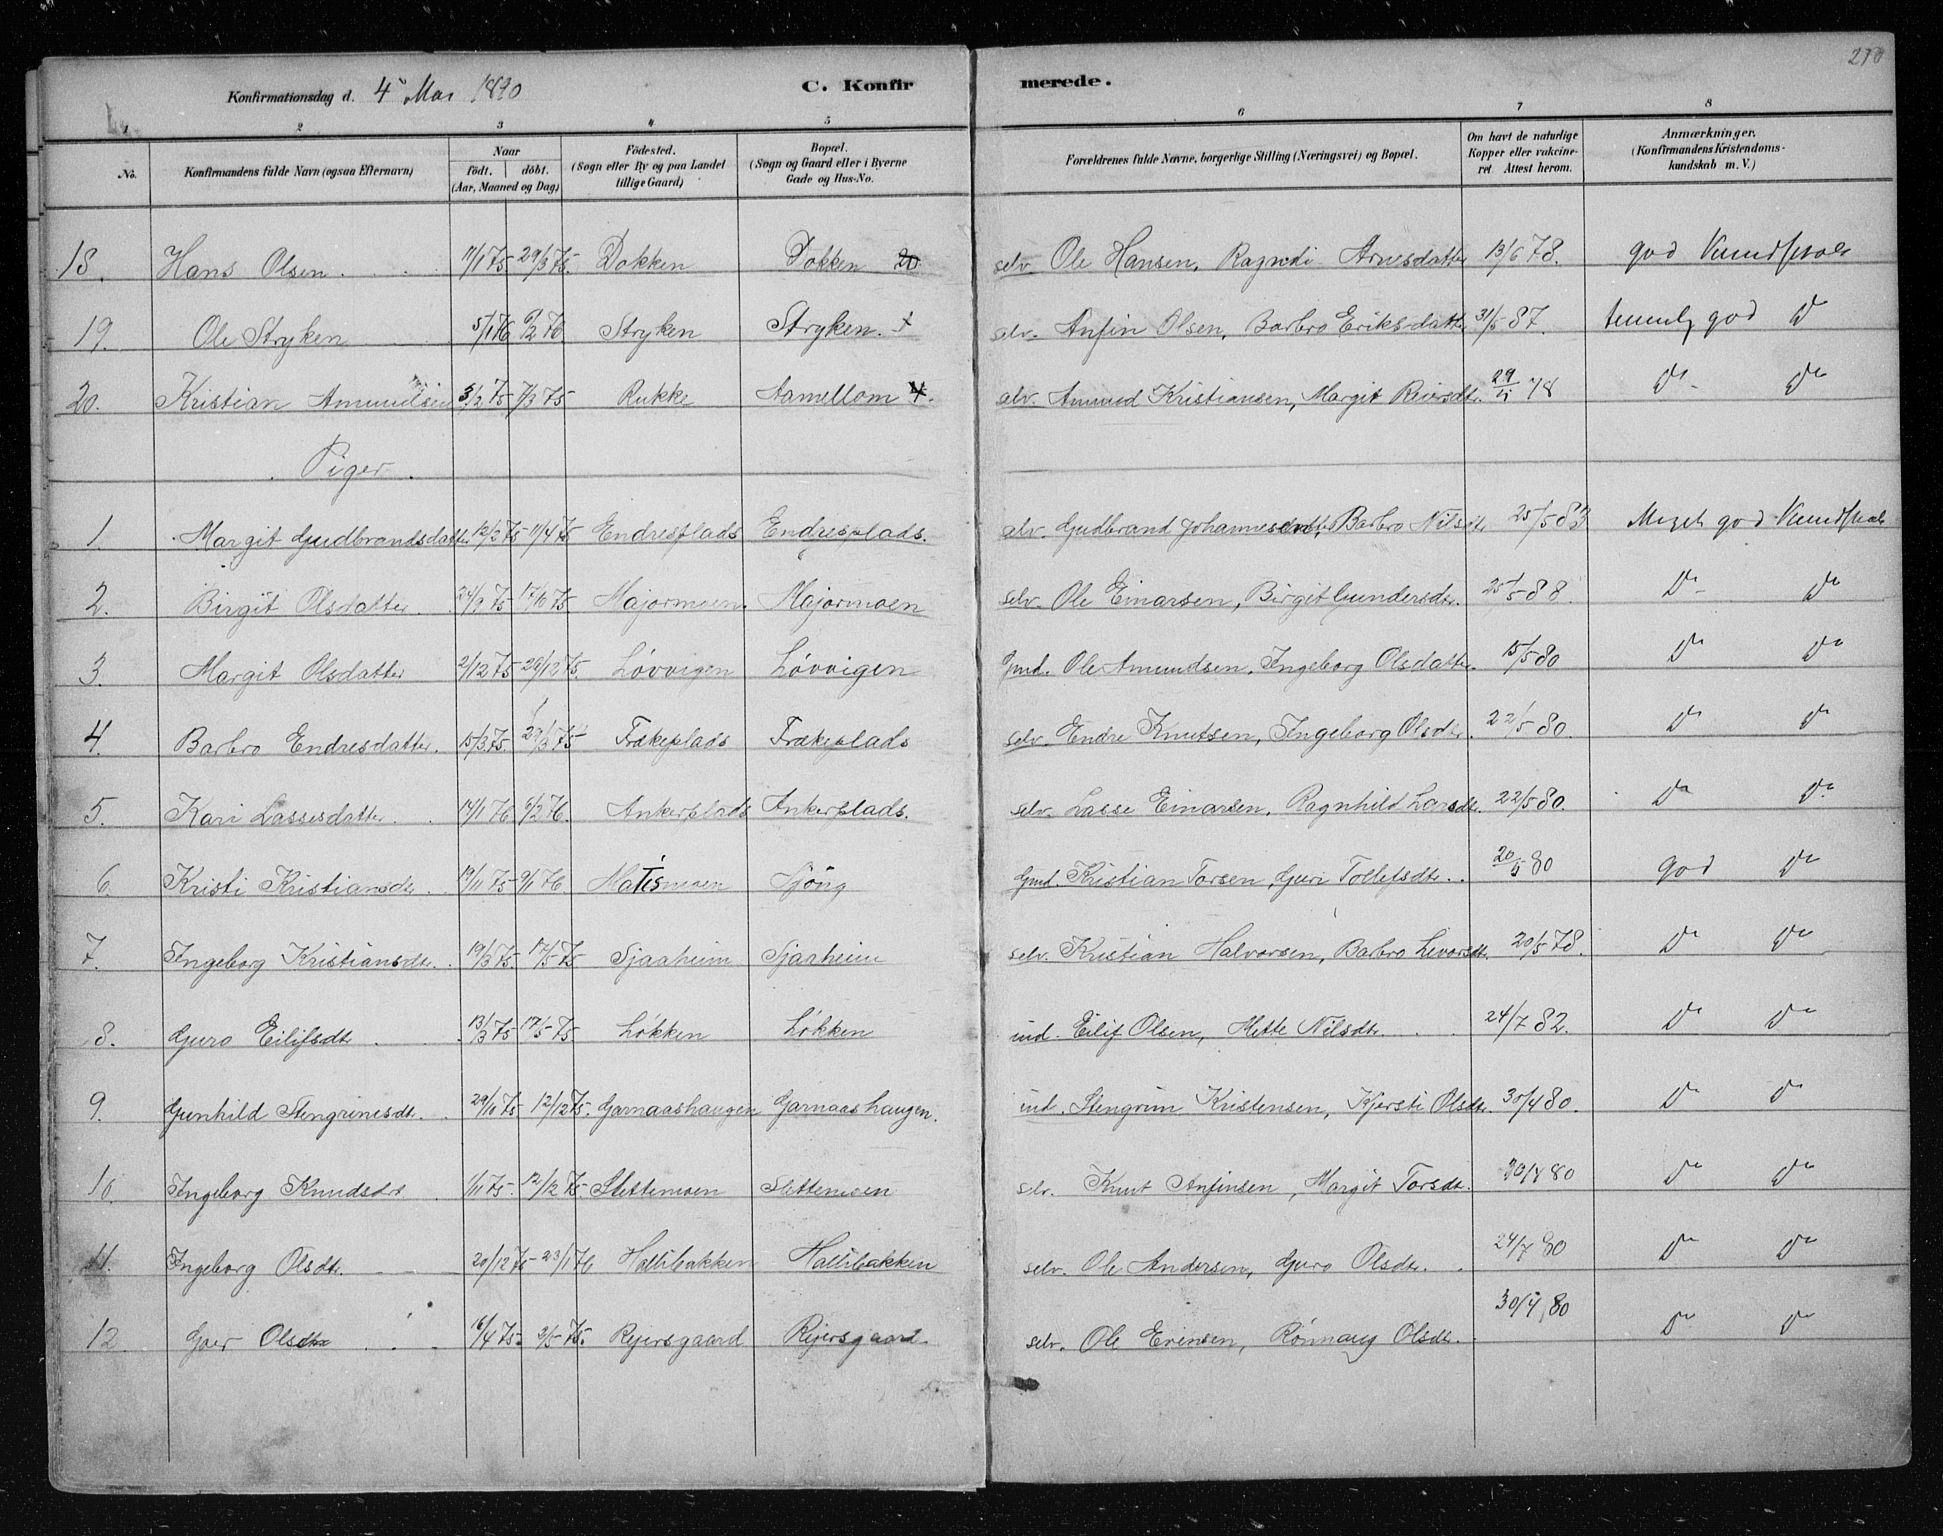 210
Konfirmationsdag d. 4de Mai 1890 C. Konfirmerede.
1 2 3 4 5 6 7 8
No. Konfirmandens fulde Navn (ogsaa Efternavn) Naar födt. döbt. (Aar, Maaned og Dag) Födested. (Sogn eller By og paa Landet tillige Gaard) Bopæl. (Sogn og Gaard eller i Byerne Gade og Hus-No. Forældrenes fulde Navne, borgerlige Stilling (Næringsvei) og Bopæl. Om havt de naturlige Kopper eller vakcineret. Attest herom. Anmærkninger. (Konfirmandens Kristendomskundskab m. V.)
18. Hans Olsen 11/1 75 29/3 75. Dokken Dokken 20 selv. Ole Hansen, Ragndi Arnesdatter 13/6 78. god Kundskab
19. Ole Stryken 5/1 76 6/2 76. Stryken Stryken. selv. Anfin Olsen, Barbro Eriksdatter 31/5 87. temmelig god Do
20. Kristian Amundsen 3/2 75 7/3 75 Rukke Aamellom 4. selv. Amund Kristiansen, Margit 29/5 78 Do Do
Piger.
1. Margit Gudbrandsdatter 12/2 75 11/4 75 Endresplads Endresplads. selv. Gudbrand Johannesen, Barbro Nilsdt. 25/5 83 Meget god Kundskab
2. Birgit Olsdatter 24/9 75 17/10 75 Majormoen Majormoen selv. Ole Einarsen, Birgit Gundersdtr. 25/5 88. Do Do
3. Margit Olsdatter 2/12 75 29/12 75. Lövvigen Lövvigen Gmd. Ole Amundsen, Ingeborg Olsdatter. 15/5 80 Do Do
4. Barbro Endresdatter. 15/3 75 29/3 75 Frakeplads Frakeplads selv. Endre Knutsen, Ingeborg Olsdtr. 22/5 80. Do Do
5. Kari Lassesdatter 14/1 76 6/2 76. Ankerplads Ankerplads. selv. Lasse Einarsen, Ragnhild Larsdtr. 22/5 80. Do Do
6. Kristi Kristiansdtr. 19/11 75 9/1 76 Matismoen Sjöng Gmd. Kristian Torsen, Guri Tollefsdtr. 20/5 80 god Do
7. Ingeborg Kristiansdtr. 19/3 75. 17/5 75 Sjaaheim Sjaaheim selv. Kristian Halvorsen, Barbro Levorsdtr. 20/5 78. Do Do
8. Guro Eilifsdtr 13/3 75 17/5 75 Lökken Lökken ind. Eilif Olsen, Mette Nilsdtr. 24/7 82. Do Do
9. Gunhild Stengrimsdtr. 29/11 75 12/12 75. Garnaashaugen Garnaashaugen. ind. Stengrim Kristensen, Kjersti Olsdtr. 30/4 80. Do Do
10. Ingeborg Knudsdtr 1/11 75. 12/12 75 Slettemoen Slettemoen selv. Knut Anfinsen, Margit Torsdtr. 30/4 80 Do Do
11. Ingeborg Olsdtr. 20/12 75 23/1 76 Hallibakken Hallibakken selv. Ole Andersen, Guro Olsdtr. 24/7 80 Do Do
12. Goer Olsdtr 16/4 75. 2/5 75. Rejersgaard Rejersgaard. selv. Ole Erensen, Rönnaug Olsdtr. 30/4 80 Do Do